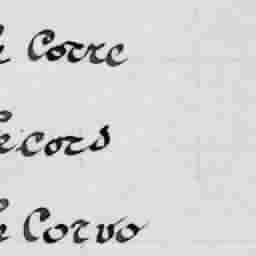 Corre
ecors
Corvo